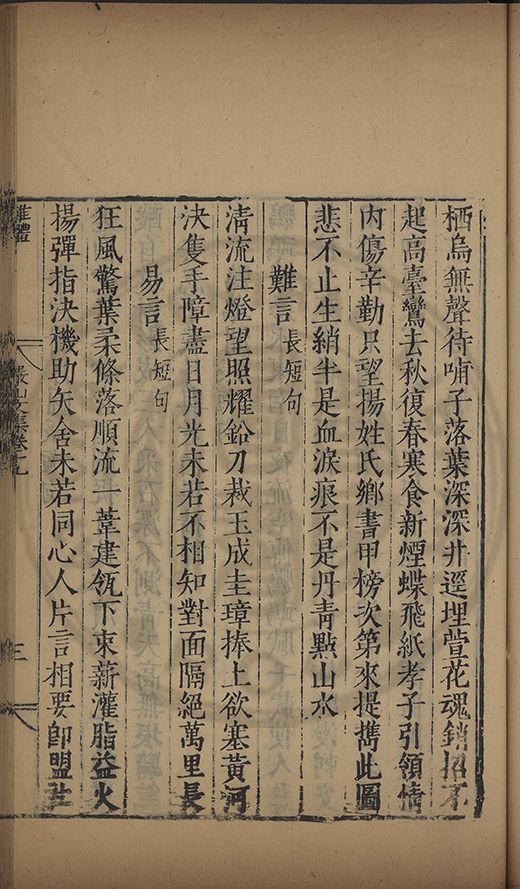 栖烏無聲待哺子落葉深深井逕埋萱花魂銷招不
起高臺鸞去秋復春寒食新煙蝶飛紙孝子引領情
内傷辛勤只望揚姓氏鄉書甲榜次第來提攜此圖
悲不止生綃半是血淚痕不是丹青點山水
難言長短句
淸流注燈望照耀鉛刀裁玉成圭璋捧土欲塞黃河
決隻手障盡日月光未若不相知對面隔絕萬里長
易言長短句
狂風驚葉柔條落順流一葦建瓴下束薪灌脂益火
揚彈指決機助矢舍未若同心人片言相要卽盟世
雜體
文集卷九
三